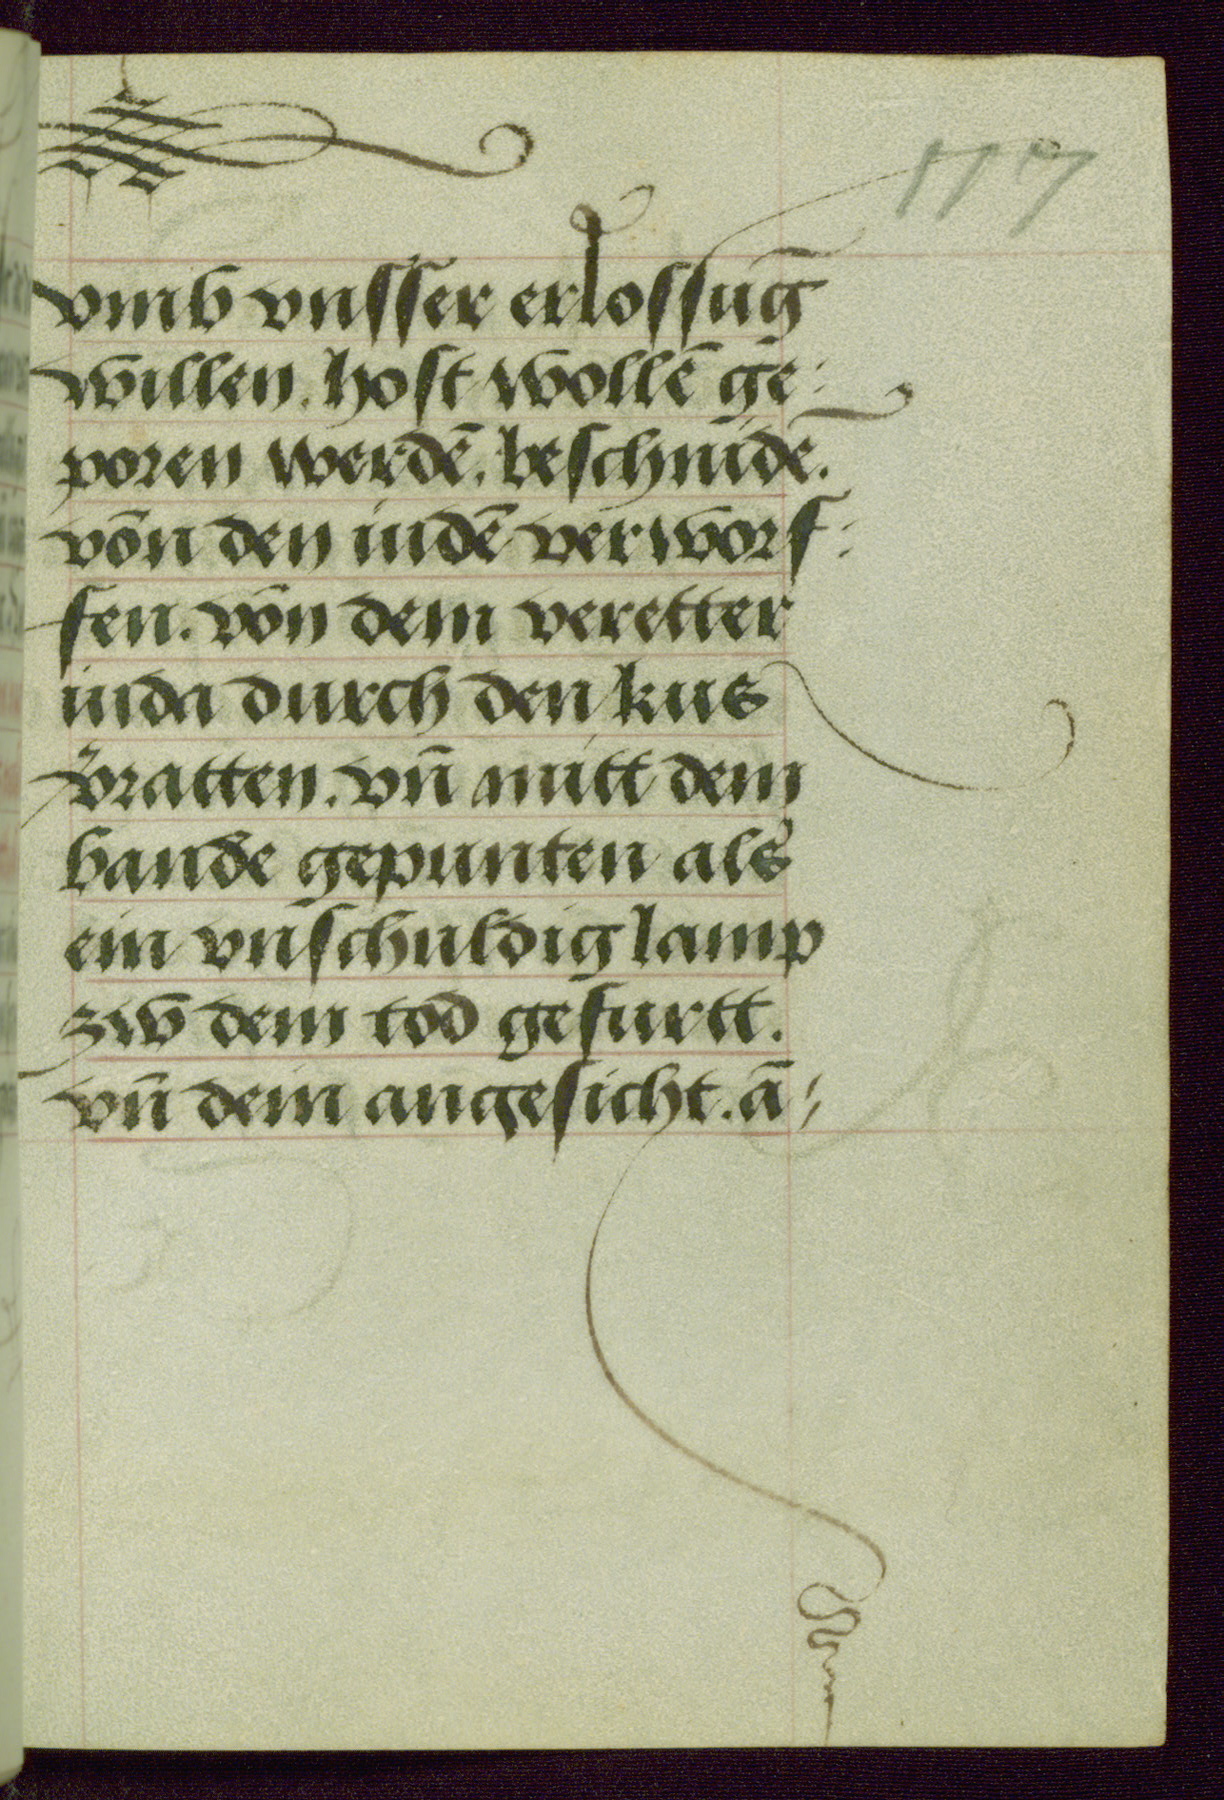 117
vmb vnsser erlossūg
willen. host wollē ge:
poren werdē. beschnidē.
von den iudē verworf:
fen. von dem veretter
iuda durch den kus
v̾ratten. vn̄ mitt dem
bande gepunten als
ein vnschuldig lamp
zw dem tod gefurtt.
vn̄ dein angesicht. ā: